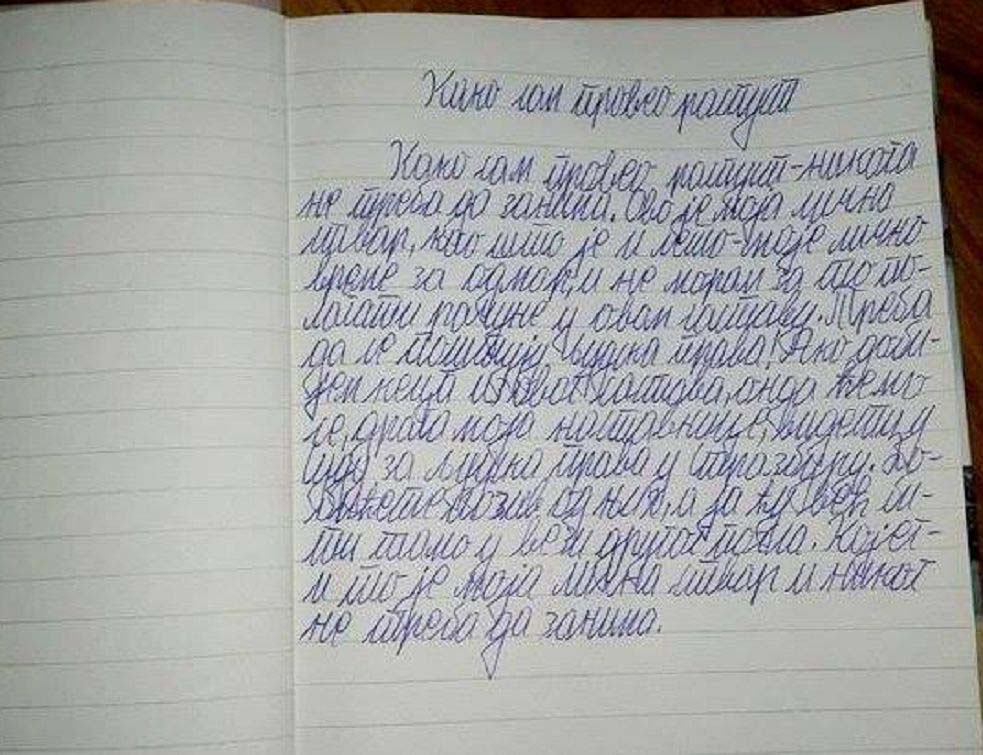 Како сам провео распуст
Како сам провео распуст-никога
не треба да занима. Ово је моја лична
ствар, као што је и лето-моје лично
време за одмор, и не морам за то по-
лагати рачуне у овом саставу. Треба
да се поштују људска права! Ако доби-
јем кец из овог састава, онда ћемо
се, драга моја наставнице, видети у
Суду за људска права у Стразбуру. До-
бићете позив од њих, а ја ћу већ ић-
ти тамо у вези другог посла. Којег-
и то је моја лична ствар и никог
не треба да занима.